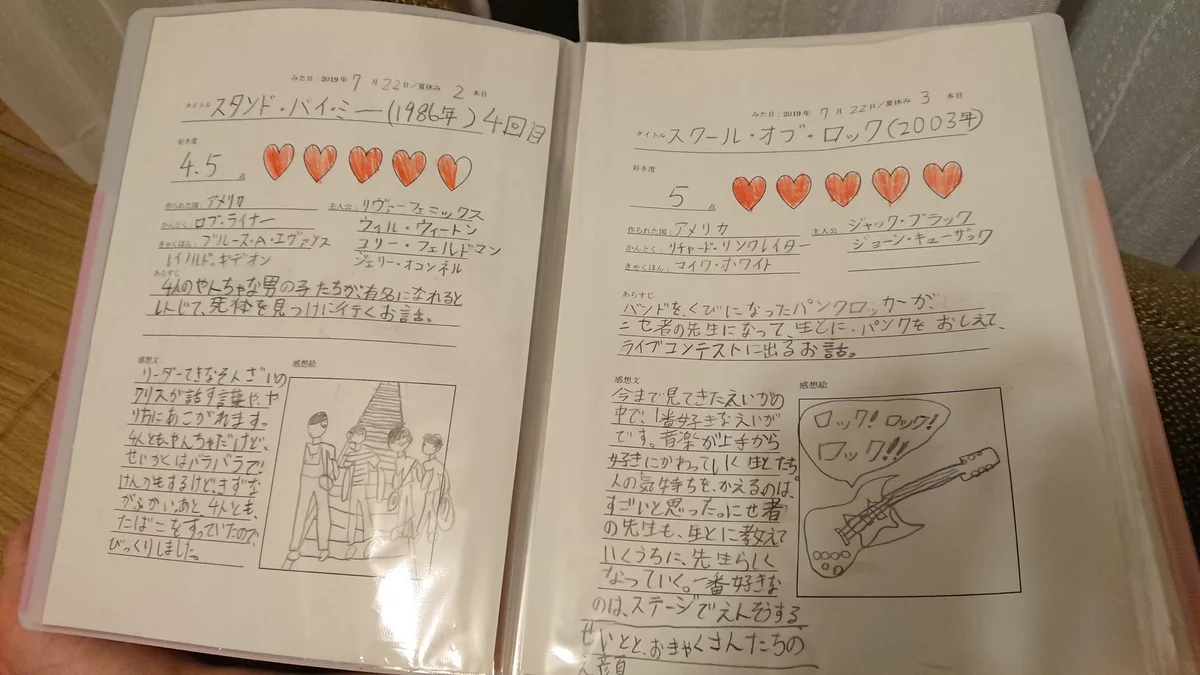 みた日：2019年 7月22日／夏休み 2 本目
タイトル スタンド・バイ・ミー(1986年) 4回目
好き度
4.5 点
作られた国：アメリカ
かんとく：ロブ・ライナー
きゃくほん：ブルース・A・エヴァンス
レイノルド・ギデオン
主人公：リヴァーフェニックス
ウィル・ウィートン
コリー・フェルドマン
ジェリー・オコンネル
あらすじ
4人のやんちゃな男の子たちが、有名になれると
しんじて、死体を見つけに行くお話。
感想文
リーダーてきなそんざいの
クリスが話す言葉や、や
り方にあこがれます。
4人ともやんちゃだけど、
せいかくはバラバラで!
けんかもするけど、きずな
がふかい。あと、4人とも、
たばこをすっていたので、
びっくりしました。
感想絵
みた日：2019年 7月22日／夏休み 3 本目
タイトル スクール・オブ・ロック(2003年)
好き度
5 点
作られた国：アメリカ
かんとく：リチャード・リンクレイター
きゃくほん：マイク・ホワイト
主人公：ジャック・ブラック
ジョーン・キューザック
あらすじ
バンドをくびになったパンクロッカーが、
ニセ者の先生になって、生とに、パンクを おしえて、
ライブコンテストに出るお話。
感想文
今まで見てきたえいがの
中で、1番好きなえいが
です。音楽が上手から
好きにかわっていく生とたち
人の気持ちを、かえるのは、
すごいと思った。にせ者
の先生も、生とに教えて
いくうちに、先生らしく
なっていく。一番好きな
のは、ステージでえんそうする
せいとと、おきゃくさんたちの
え顔
感想絵
ロック! ロック!
ロック!!